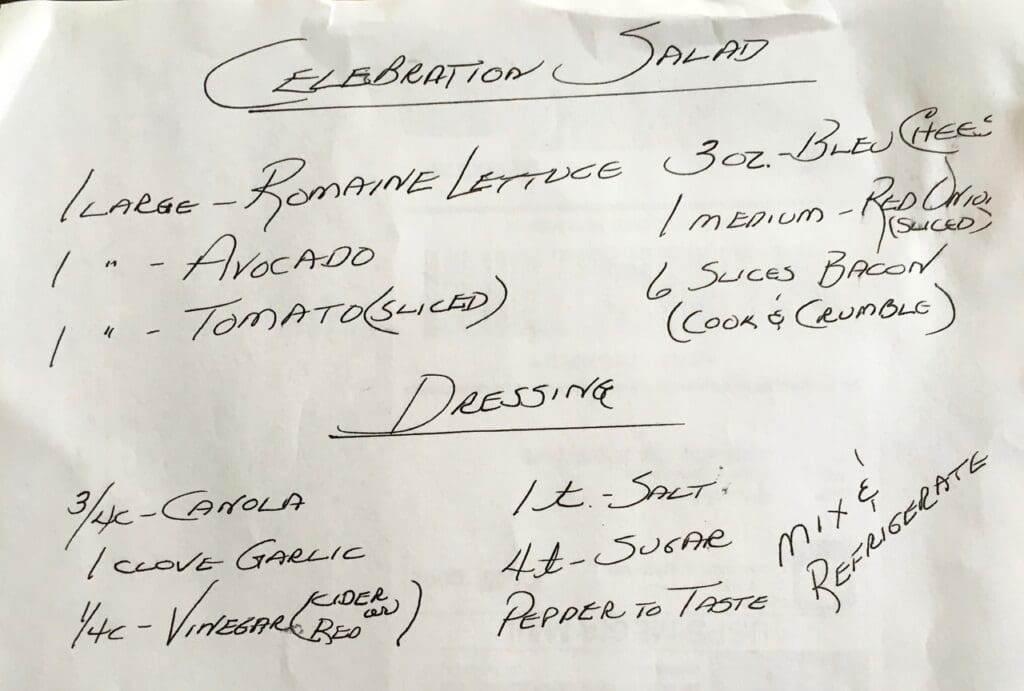 CELEBRATION SALAD
1 LARGE - ROMAINE LETTUCE
1 " - AVOCADO
1 " - TOMATO (SLICED)
3 OZ. - BLEU CHEES
1 MEDIUM - RED ONION
(SLICED)
6 SLICES BACON
(COOK & CRUMBLE)
DRESSING
3/4C - CANOLA
1 CLOVE GARLIC
1/4C - VINEGAR (CIDER or RED)
1 t. - SALT
4t - SUGAR
PEPPER TO TASTE
MIX &
REFRIGERATE